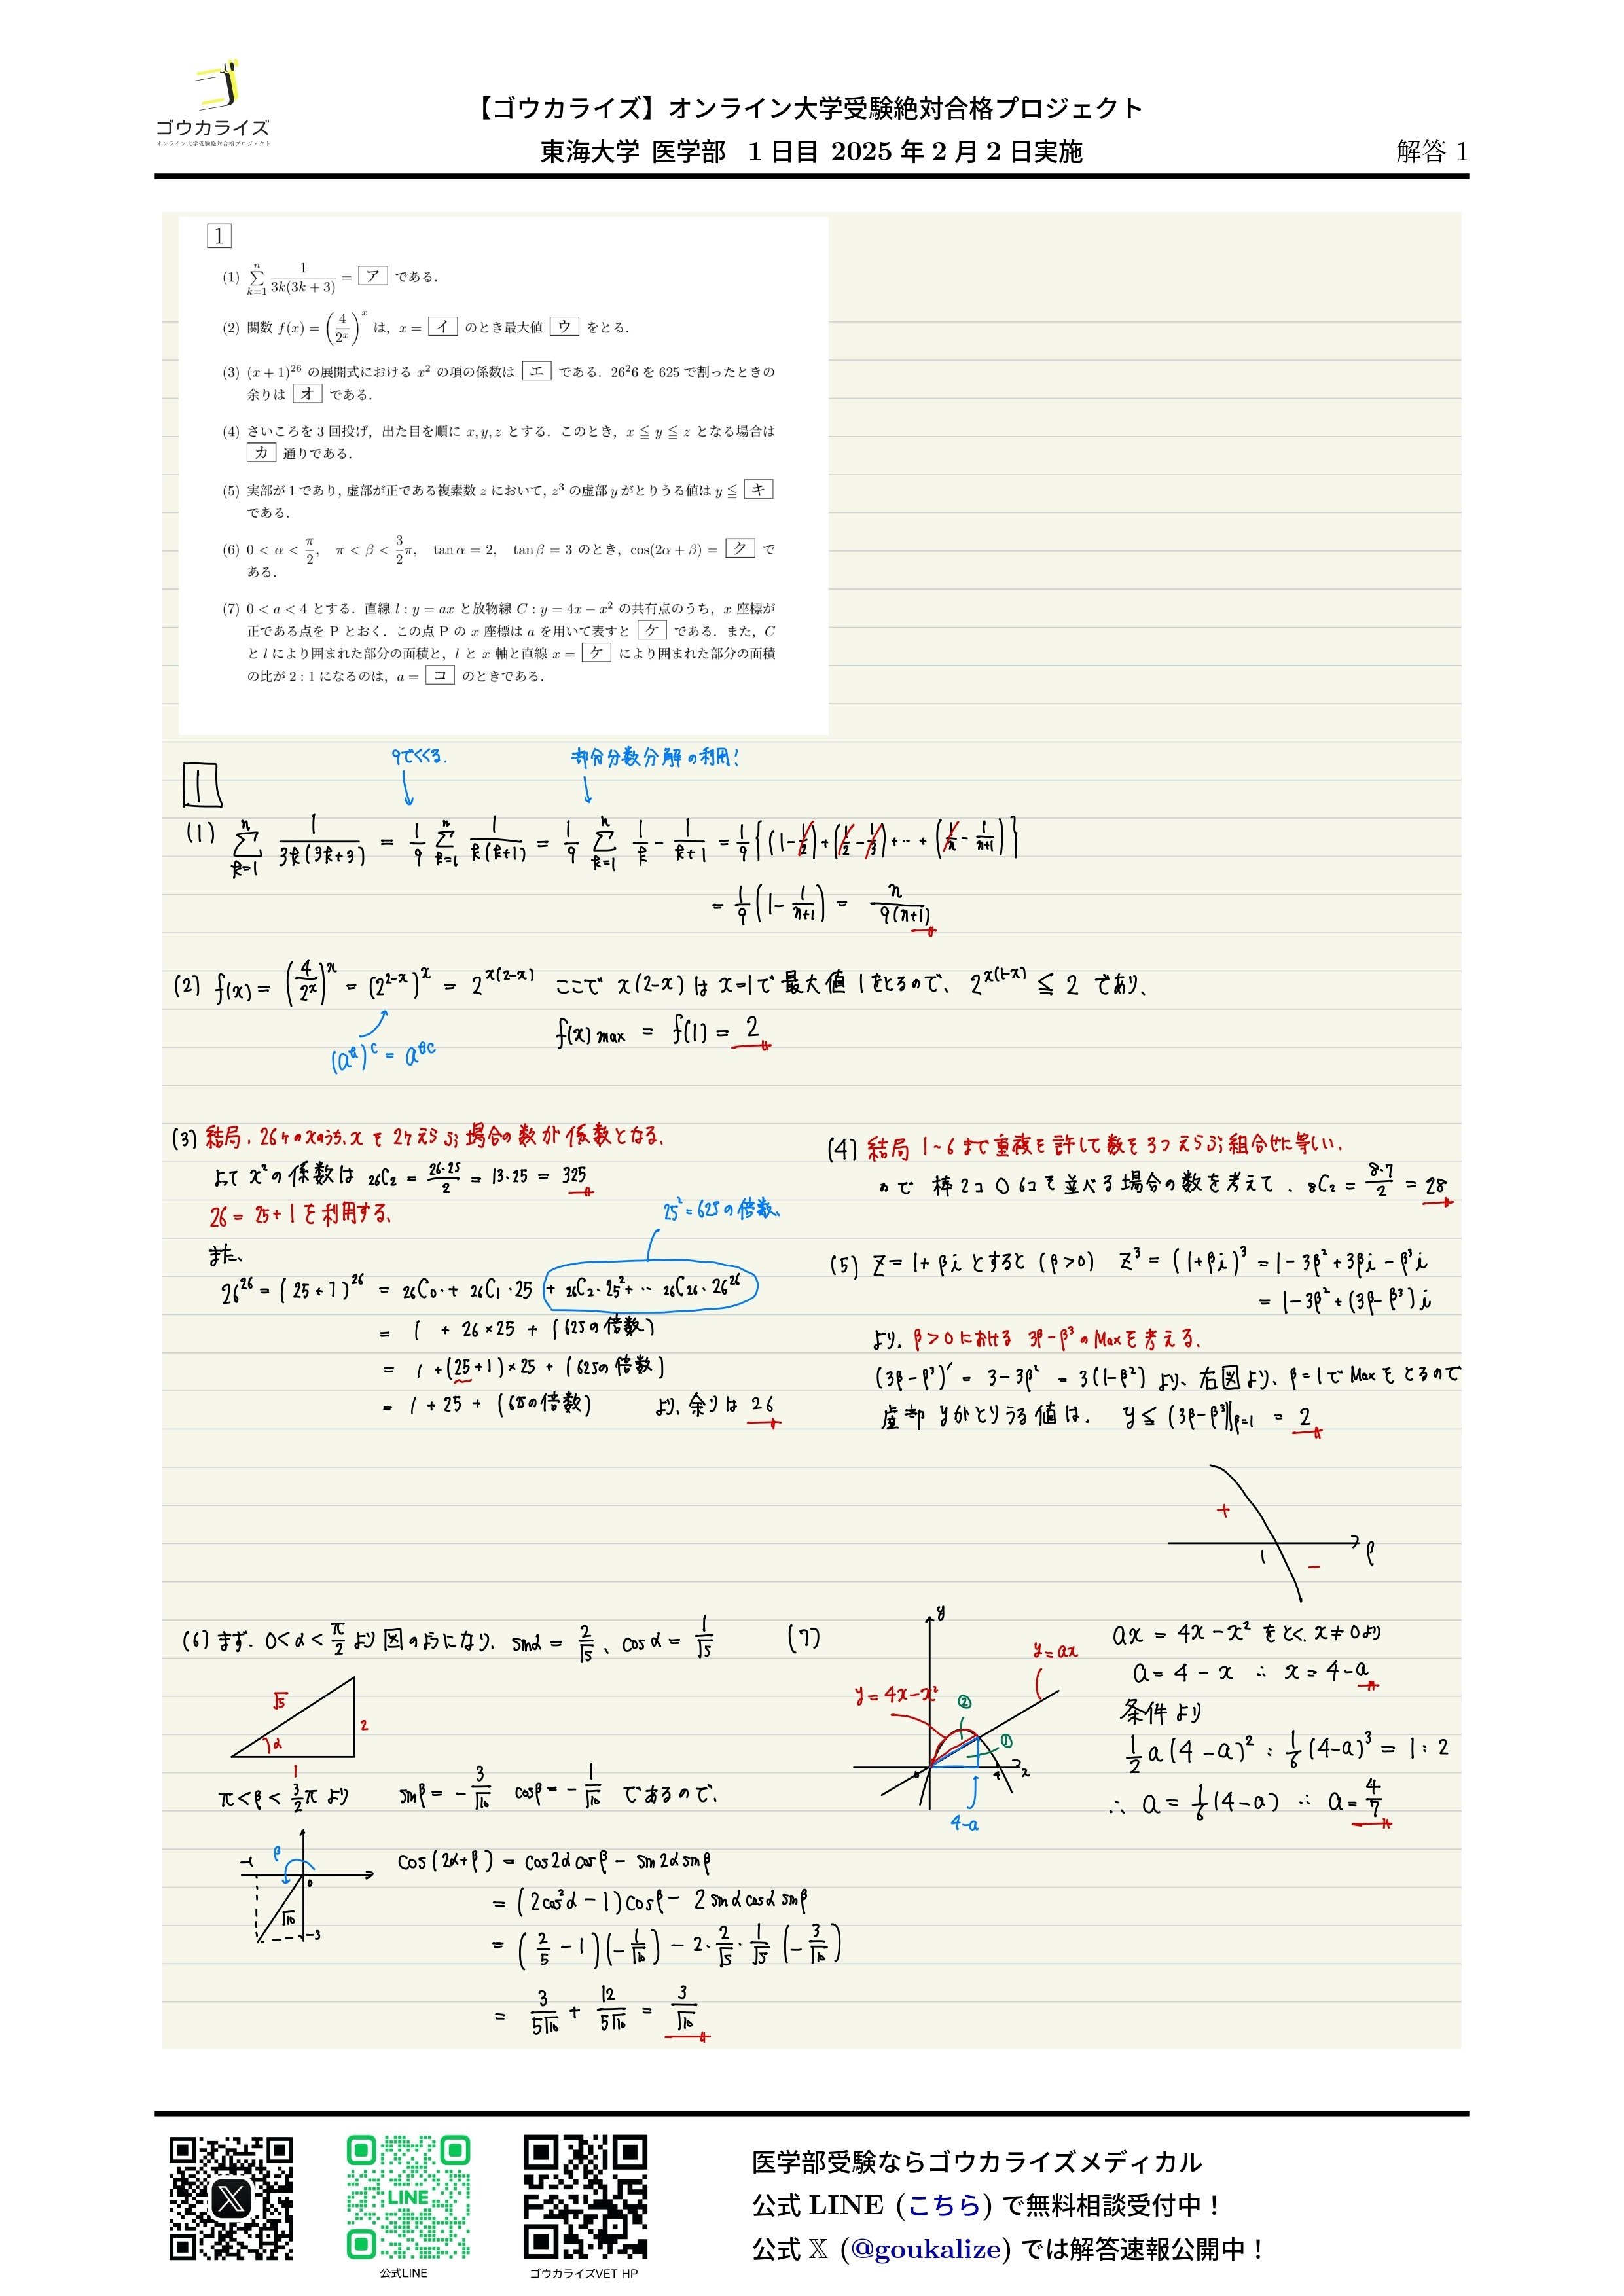 ゴウカライズ
オンライン大学受験絶対合格プロジェクト
【ゴウカライズ】オンライン大学受験絶対合格プロジェクト
東海大学 医学部 1日目 2025年2月2日実施
解答 1
1
(1) \sum_{k=1}^{n} \frac{1}{3k(3k+3)} = ア である.
(2) 関数 f(x) = \left(\frac{4}{2^x}\right)^x は, x = イ のとき最大値 ウ をとる.
(3) (x+1)^{26} の展開式における x^2 の項の係数は エ である. 26^26 を 625 で割ったときの
余りは オ である.
(4) さいころを 3 回投げ, 出た目を順に x, y, z とする. このとき, x ≦ y ≦ z となる場合は
カ 通りである.
(5) 実部が 1 であり, 虚部が正である複素数 z において, z^3 の虚部 y がとりうる値は y ≦ キ
である.
(6) 0 < α < \frac{π}{2}, π < β < \frac{3}{2}π, tan α = 2, tan β = 3 のとき, cos(2α + β) = ク で
ある.
(7) 0 < a < 4 とする. 直線 l : y = ax と放物線 C : y = 4x − x^2 の共有点のうち, x 座標が
正である点を P とおく. この点 P の x 座標は a を用いて表すと ケ である. また, C
と l により囲まれた部分の面積と, l と x 軸と直線 x = ケ により囲まれた部分の面積
の比が 2 : 1 になるのは, a = コ のときである.
1
9でくくる.
部分分数分解の利用!
(1) \sum_{k=1}^{n} \frac{1}{3k(3k+3)} = \frac{1}{9} \sum_{k=1}^{n} \frac{1}{k(k+1)} = \frac{1}{9} \sum_{k=1}^{n} \frac{1}{k} - \frac{1}{k+1} = \frac{1}{9}{(1-\frac{1}{2})+(\frac{1}{2}-\frac{1}{3})+…+(\frac{1}{n}-\frac{1}{n+1})}
= \frac{1}{9}(1-\frac{1}{n+1}) = \frac{n}{9(n+1)}
(2) f(x) = (\frac{4}{2^x})^x = (2^{2-x})^x = 2^{x(2-x)} ここで x(2-x) は x=1で最大値1をとるので、2^{x(1-x)} ≦ 2 であり、
f(x) max = f(1) = 2
(a^B)^C = a^{BC}
(3) 結局, 26ケのxのうち、xを2ケえらぶ場合の数が係数となる.
よって x^2の係数は 26C2 = \frac{26·25}{2} = 13·25 = 325
26 = 25+1を利用する.
25^2=625の倍数.
また、
26^{26} = (25+1)^{26} = 26C0·+ 26C1·25 + 26C2·25^2+ … 26C26·26^{26}
= 1 + 26×25 + (625の倍数)
= 1 +(25+1)×25 + (625の倍数)
= 1 + 25 + (625の倍数) より、余りは 26
(4) 結局 1~6まで重複を許して数を3つえらぶ組合せに等しい.
ので 棒2コ ○6コを並べる場合の数を考えて. 8C2 = \frac{8·7}{2} = 28
(5) Z=1+βi とすると (β>0) Z^3 = (1+βi)^3 = 1-3β^2+3βi-β^3i
= 1-3β^2+(3β-β^3)i
より. β>0における 3β-β^3のMaxを考える.
(3β-β^3)' = 3-3β^2 = 3(1-β^2) より、右図より、β=1でMaxをとるので
虚部 yがとりうる値は. y≦(3β-β^3)|β=1 = 2
+
1
β
-
(6) まず. 0<α<\frac{π}{2} より図のようになり. sinα = \frac{2}{√5}、cosα = \frac{1}{√5}
√5
2
α
1
π<β<\frac{3}{2}π より sinβ = -\frac{3}{√10} cosβ = -\frac{1}{√10} であるので、
β
-1
0
√10
-3
cos(2α+β) = cos2αcosβ - sin2αsinβ
= (2cos^2α-1)cosβ - 2sinαcosαsinβ
= (\frac{2}{5}-1)(-\frac{1}{√10}) - 2·\frac{2}{√5}·\frac{1}{√5}(-\frac{3}{√10})
= \frac{3}{5√10} + \frac{12}{5√10} = \frac{3}{√10}
(7)
y
y=ax
y=4x-x^2
②
①
0
4
x
4-a
ax = 4x-x^2 をとく. x≠0より
a = 4-x ∴ x = 4-a
条件より
\frac{1}{2}a(4-a)^2 : \frac{1}{6}(4-a)^3 = 1:2
∴ a = \frac{1}{6}(4-a) ∴ a = \frac{4}{7}
LINE
公式LINE
ゴウカライズVET HP
医学部受験ならゴウカライズメディカル
公式 LINE (こちら) で無料相談受付中！
公式 𝕏 (@goukalize) では解答速報公開中！